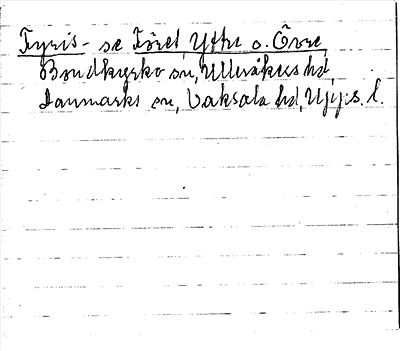 Fyris- se Föret, Yttre o. Övre
Bondkyrko sn, Ulleråkers hd,
Danmarks sn, Vaksala hd, Upps. l.